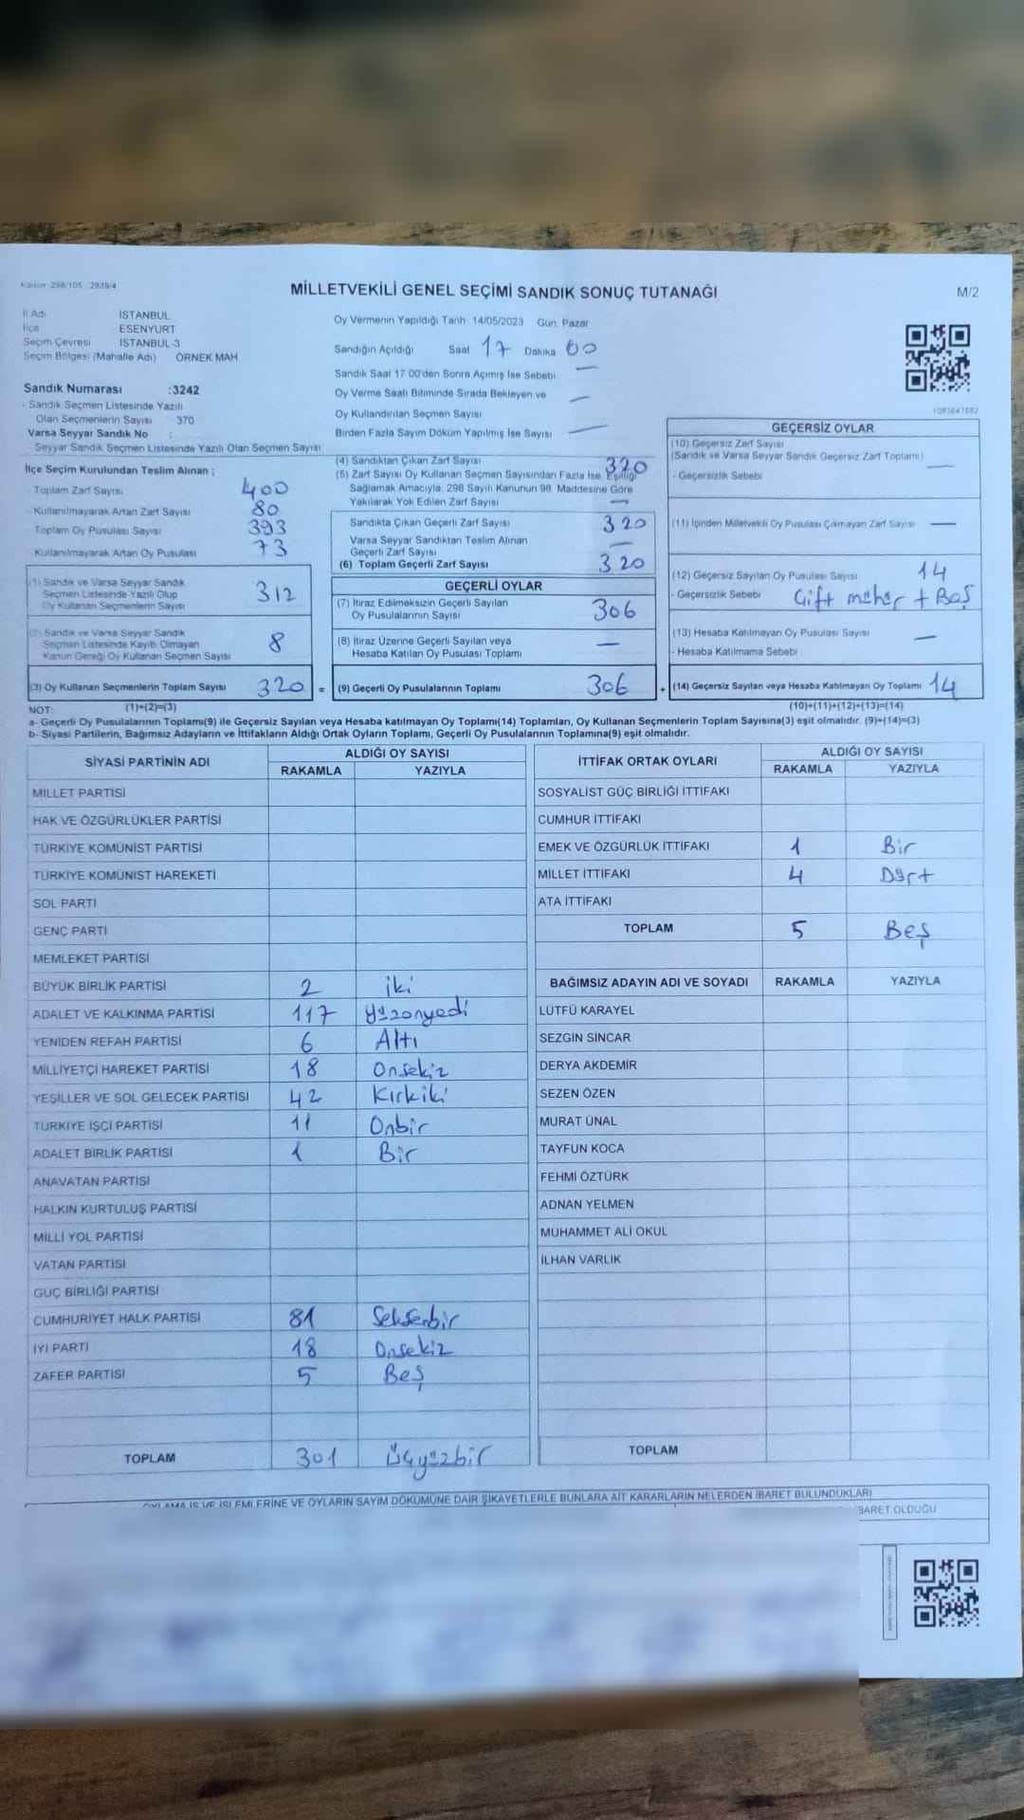 Kanun 298/105 2839/4
MİLLETVEKİLİ GENEL SEÇİMİ SANDIK SONUÇ TUTANAĞI
M/2
İl Adı İSTANBUL
İlçe ESENYURT
Seçim Çevresi İSTANBUL-3
Seçim Bölgesi (Mahalle Adı) ÖRNEK MAH
Sandık Numarası :3242
- Sandık Seçmen Listesinde Yazılı
Olan Seçmenlerin Sayısı 370
Varsa Seyyar Sandık No :
Seyyar Sandık Seçmen Listesinde Yazılı Olan Seçmen Sayısı
Oy Vermenin Yapıldığı Tarih 14/05/2023 Gün: Pazar
Sandığın Açıldığı Saat 17 Dakika 00
Sandık Saat 17:00'den Sonra Açımış İse Sebebi —
Oy Verme Saati Bitiminde Sırada Bekleyen ve
Oy Kullandırılan Seçmen Sayısı —
Birden Fazla Sayım Döküm Yapılmış İse Sayısı —
İlçe Seçim Kurulundan Teslim Alınan ;
- Toplam Zarf Sayısı 400
- Kullanılmayarak Artan Zarf Sayısı 80
Toplam Oy Pusulası Sayısı 393
- Kullanılmayarak Artan Oy Pusulası 73
(1) Sandık ve Varsa Seyyar Sandık
Seçmen Listesinde Yazılı Olup
Oy Kullanan Seçmenlerin Sayısı 312
(2) Sandık ve Varsa Seyyar Sandık
Seçmen Listesinde Kayıtlı Olmayan
Kanun Gereği Oy Kullanan Seçmen Sayısı 8
(3) Oy Kullanan Seçmenlerin Toplam Sayısı 320 =
(4) Sandıktan Çıkan Zarf Sayısı 320
(5) Zarf Sayısı Oy Kullanan Seçmen Sayısından Fazla İse, Eşitliği
Sağlamak Amacıyla, 298 Sayılı Kanunun 98. Maddesine Göre
Yakılarak Yok Edilen Zarf Sayısı —
Sandıkta Çıkan Geçerli Zarf Sayısı 320
Varsa Seyyar Sandıktan Teslim Alınan
Geçerli Zarf Sayısı —
(6) Toplam Geçerli Zarf Sayısı 320
GEÇERLİ OYLAR
(7) İtiraz Edilmeksizin Geçerli Sayılan
Oy Pusulalarının Sayısı 306
(8) İtiraz Üzerine Geçerli Sayılan veya
Hesaba Katılan Oy Pusulası Toplamı —
(9) Geçerli Oy Pusulalarının Toplamı 306 +
GEÇERSİZ OYLAR
(10) Geçersiz Zarf Sayısı
(Sandık ve Varsa Seyyar Sandık Geçersiz Zarf Toplamı) —
- Geçersizlik Sebebi
(11) İçinden Milletvekili Oy Pusulası Çıkmayan Zarf Sayısı —
(12) Geçersiz Sayılan Oy Pusulası Sayısı 14
- Geçersizlik Sebebi Çift mühür + Boş
(13) Hesaba Katılmayan Oy Pusulası Sayısı —
- Hesaba Katılmama Sebebi
(14) Geçersiz Sayılan veya Hesaba Katılmayan Oy Toplamı 14
NOT: (1)+(2)=(3) (10)+(11)+(12)+(13)=(14)
a- Geçerli Oy Pusulalarının Toplamı(9) ile Geçersiz Sayılan veya Hesaba katılmayan Oy Toplamı(14) Toplamları, Oy Kullanan Seçmenlerin Toplam Sayısına(3) eşit olmalıdır. (9)+(14)=(3)
b- Siyasi Partilerin, Bağımsız Adayların ve İttifakların Aldığı Ortak Oyların Toplamı, Geçerli Oy Pusulalarının Toplamına(9) eşit olmalıdır.
SİYASİ PARTİNİN ADI ALDIĞI OY SAYISI
RAKAMLA YAZIYLA
MİLLET PARTİSİ
HAK VE ÖZGÜRLÜKLER PARTİSİ
TÜRKİYE KOMÜNİST PARTİSİ
TÜRKİYE KOMÜNİST HAREKETİ
SOL PARTİ
GENÇ PARTİ
MEMLEKET PARTİSİ
BÜYÜK BİRLİK PARTİSİ 2 iki
ADALET VE KALKINMA PARTİSİ 117 Yüzonyedi
YENİDEN REFAH PARTİSİ 6 Altı
MİLLİYETÇİ HAREKET PARTİSİ 18 Onsekiz
YEŞİLLER VE SOL GELECEK PARTİSİ 42 Kırkiki
TÜRKİYE İŞÇİ PARTİSİ 11 Onbir
ADALET BİRLİK PARTİSİ 1 Bir
ANAVATAN PARTİSİ
HALKIN KURTULUŞ PARTİSİ
MİLLİ YOL PARTİSİ
VATAN PARTİSİ
GÜÇ BİRLİĞİ PARTİSİ
CUMHURİYET HALK PARTİSİ 81 Seksenbir
İYİ PARTİ 18 Onsekiz
ZAFER PARTİSİ 5 Beş
TOPLAM 301 Üçyüzbir
İTTİFAK ORTAK OYLARI ALDIĞI OY SAYISI
RAKAMLA YAZIYLA
SOSYALİST GÜÇ BİRLİĞİ İTTİFAKI
CUMHUR İTTİFAKI
EMEK VE ÖZGÜRLÜK İTTİFAKI 1 Bir
MİLLET İTTİFAKI 4 Dört
ATA İTTİFAKI
TOPLAM 5 Beş
BAĞIMSIZ ADAYIN ADI VE SOYADI RAKAMLA YAZIYLA
LÜTFÜ KARAYEL
SEZGİN SİNCAR
DERYA AKDEMİR
SEZEN ÖZEN
MURAT ÜNAL
TAYFUN KOCA
FEHMİ ÖZTÜRK
ADNAN YELMEN
MUHAMMET ALİ OKUL
İLHAN VARLIK
TOPLAM
OYLAMA İŞ VE İŞLEMLERİNE VE OYLARIN SAYIM DÖKÜMÜNE DAİR ŞİKAYETLERLE BUNLARA AİT KARARLARIN NELERDEN İBARET BULUNDUKLARI
İBARET OLDUĞU